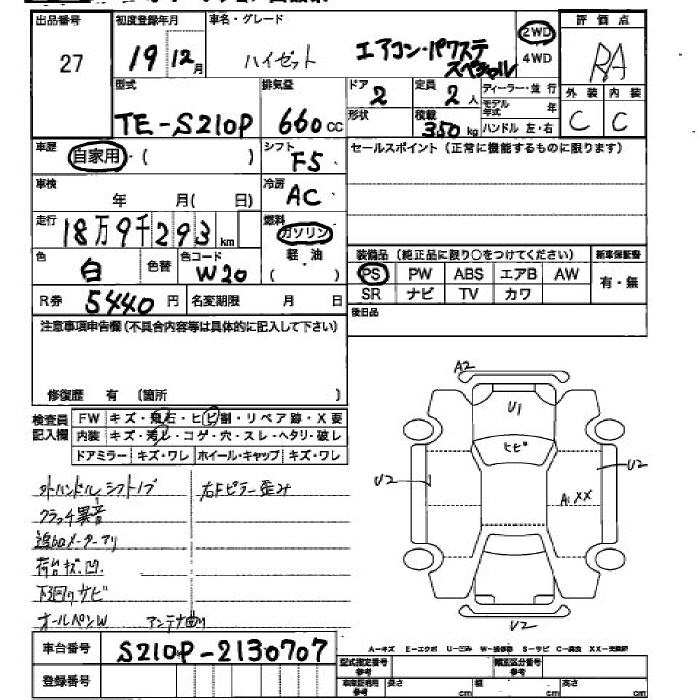 出品番号 初度登録年月 車名・グレード 評価点
27 19年12月 ハイゼット エアコン・パワステ スペシャル 2WD 4WD RA
型式 排気量 ドア 定員 ディーラー・並行 外装 内装
TE-S210P 660cc 2 2人 モデル年式 年 C C
形状 積載 350kg ハンドル 左・右
車歴 自家用・( ) シフト F5 セールスポイント(正常に機能するものに限ります)
車検 年 月( 日) 冷房 AC
走行 18万9千293km 燃料 ガソリン
軽・油 ( )
色 白 色替 色コード W20
装備品(純正品に限り○をつけてください) 新車保証書
PS PW ABS エアB AW 有・無
SR ナビ TV カワ
R券 5440円 名変期限 月 日 後日品
注意事項申告欄(不具合内容等は具体的に記入して下さい)
修復歴 有 (箇所 )
検査員記入欄 FW キズ・飛石・ヒビ割・リペア跡・X要
内装 キズ・汚れ・コゲ・穴・スレ・ヘタリ・破レ
ドアミラー キズ・ワレ ホイール・キャップ キズ・ワレ
A2
U1
ヒビ
U2
U2
A1 XX
U2
外ハンドル シフトノブ 右Fピラー歪み
クラッチ異音
追加メーターアリ
荷台キズ.凹
下廻りサビ
オールペンW アンテナ曲り
車台番号 S210P-2130707
登録番号
型式指定番号 類別区分番号
長さ cm 幅 cm 高さ cm